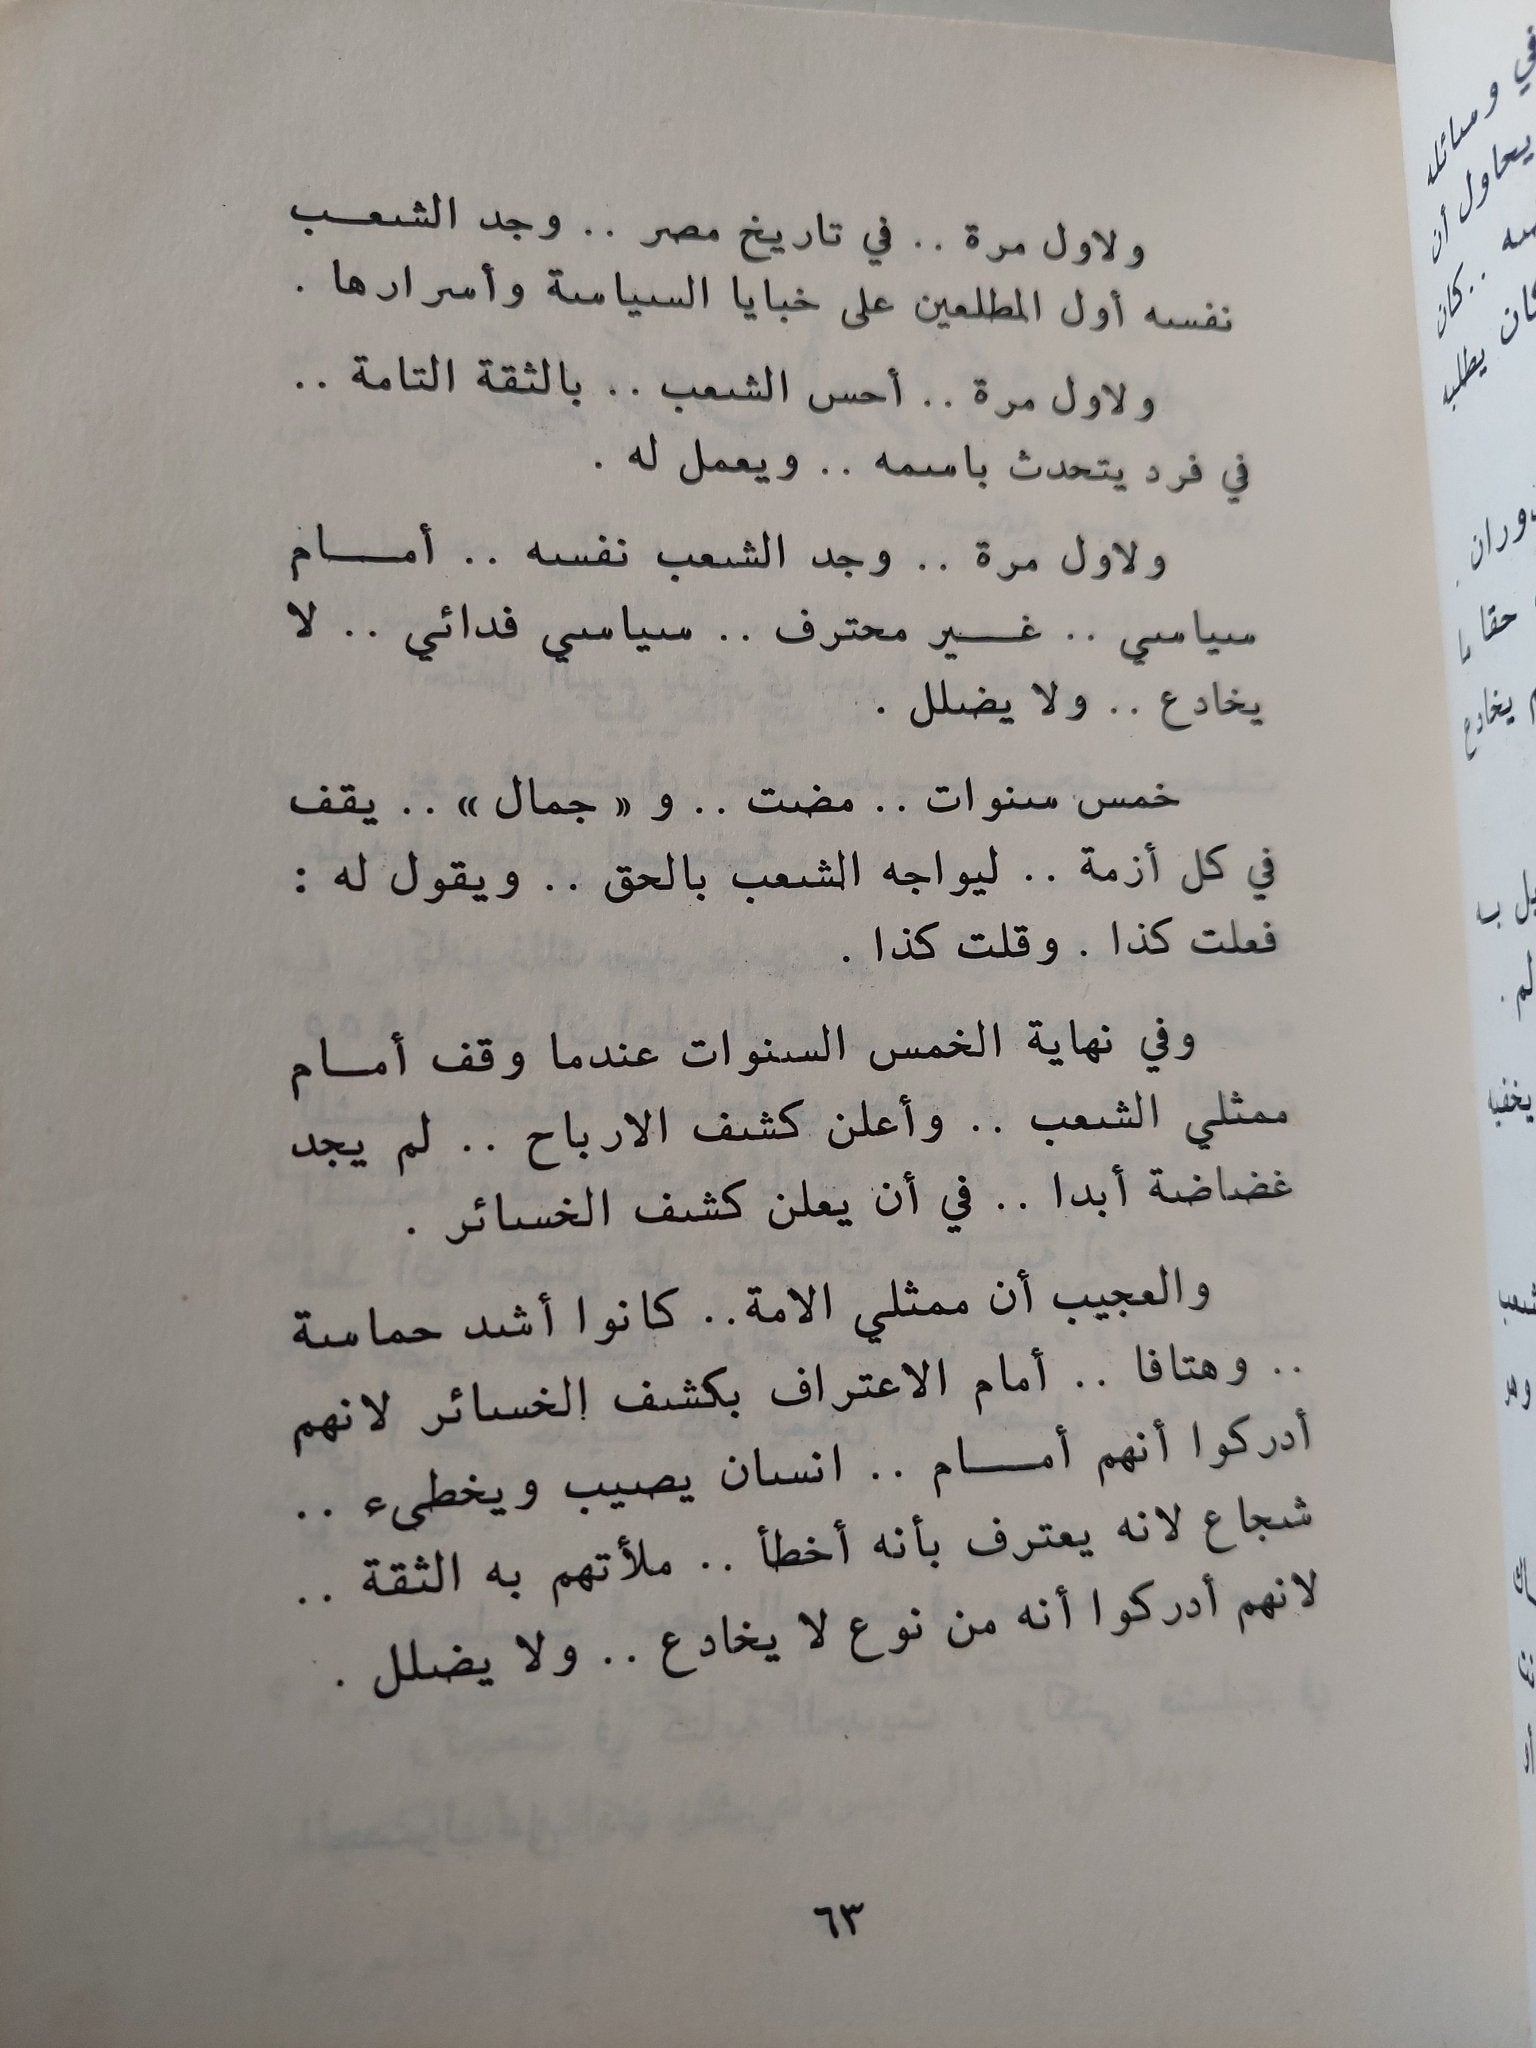 ولاول مرة .. في تاريخ مصر .. وجد الشعب
نفسه أول المطلعين على خبايا السياسة وأسرارها .
ولاول مرة .. أحس الشعب .. بالثقة التامة ..
في فرد يتحدث باسمه .. ويعمل له .
ولاول مرة .. وجد الشعب نفسه .. أمام
سياسي .. غير محترف .. سياسي فدائي .. لا
يخادع .. ولا يضلل .
خمس سنوات .. مضت .. و « جمال » .. يقف
في كل أزمة .. ليواجه الشعب بالحق .. ويقول له :
فعلت كذا . وقلت كذا .
وفي نهاية الخمس السنوات عندما وقف أمام
ممثلي الشعب .. وأعلن كشف الارباح .. لم يجد
غضاضة أبدا .. في أن يعلن كشف الخسائر .
والعجيب أن ممثلي الامة.. كانوا أشد حماسة
.. وهتافا .. أمام الاعتراف بكشف الخسائر لانهم
أدركوا أنهم أمام .. انسان يصيب ويخطىء ..
شجاع لانه يعترف بأنه أخطأ .. ملأتهم به الثقة ..
لانهم أدركوا أنه من نوع لا يخادع .. ولا يضلل .
٦٣
في وسائله
يحاول أن
.. كان
يطلبه
حقا
يخادع
لم .
يخفيه